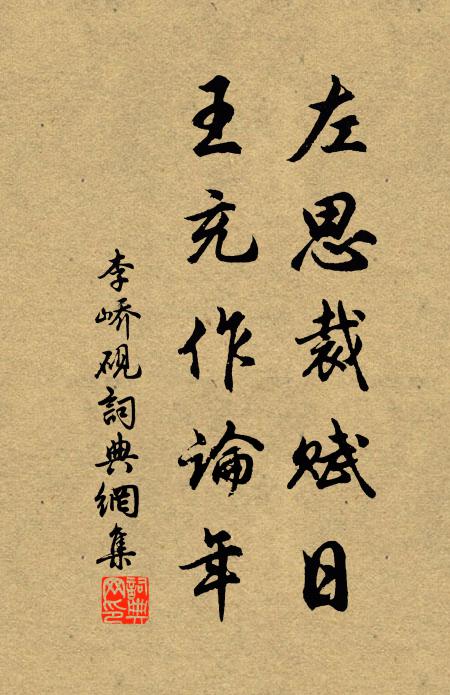 左思裁赋日
王充作論年
李嶠硯詞典網集